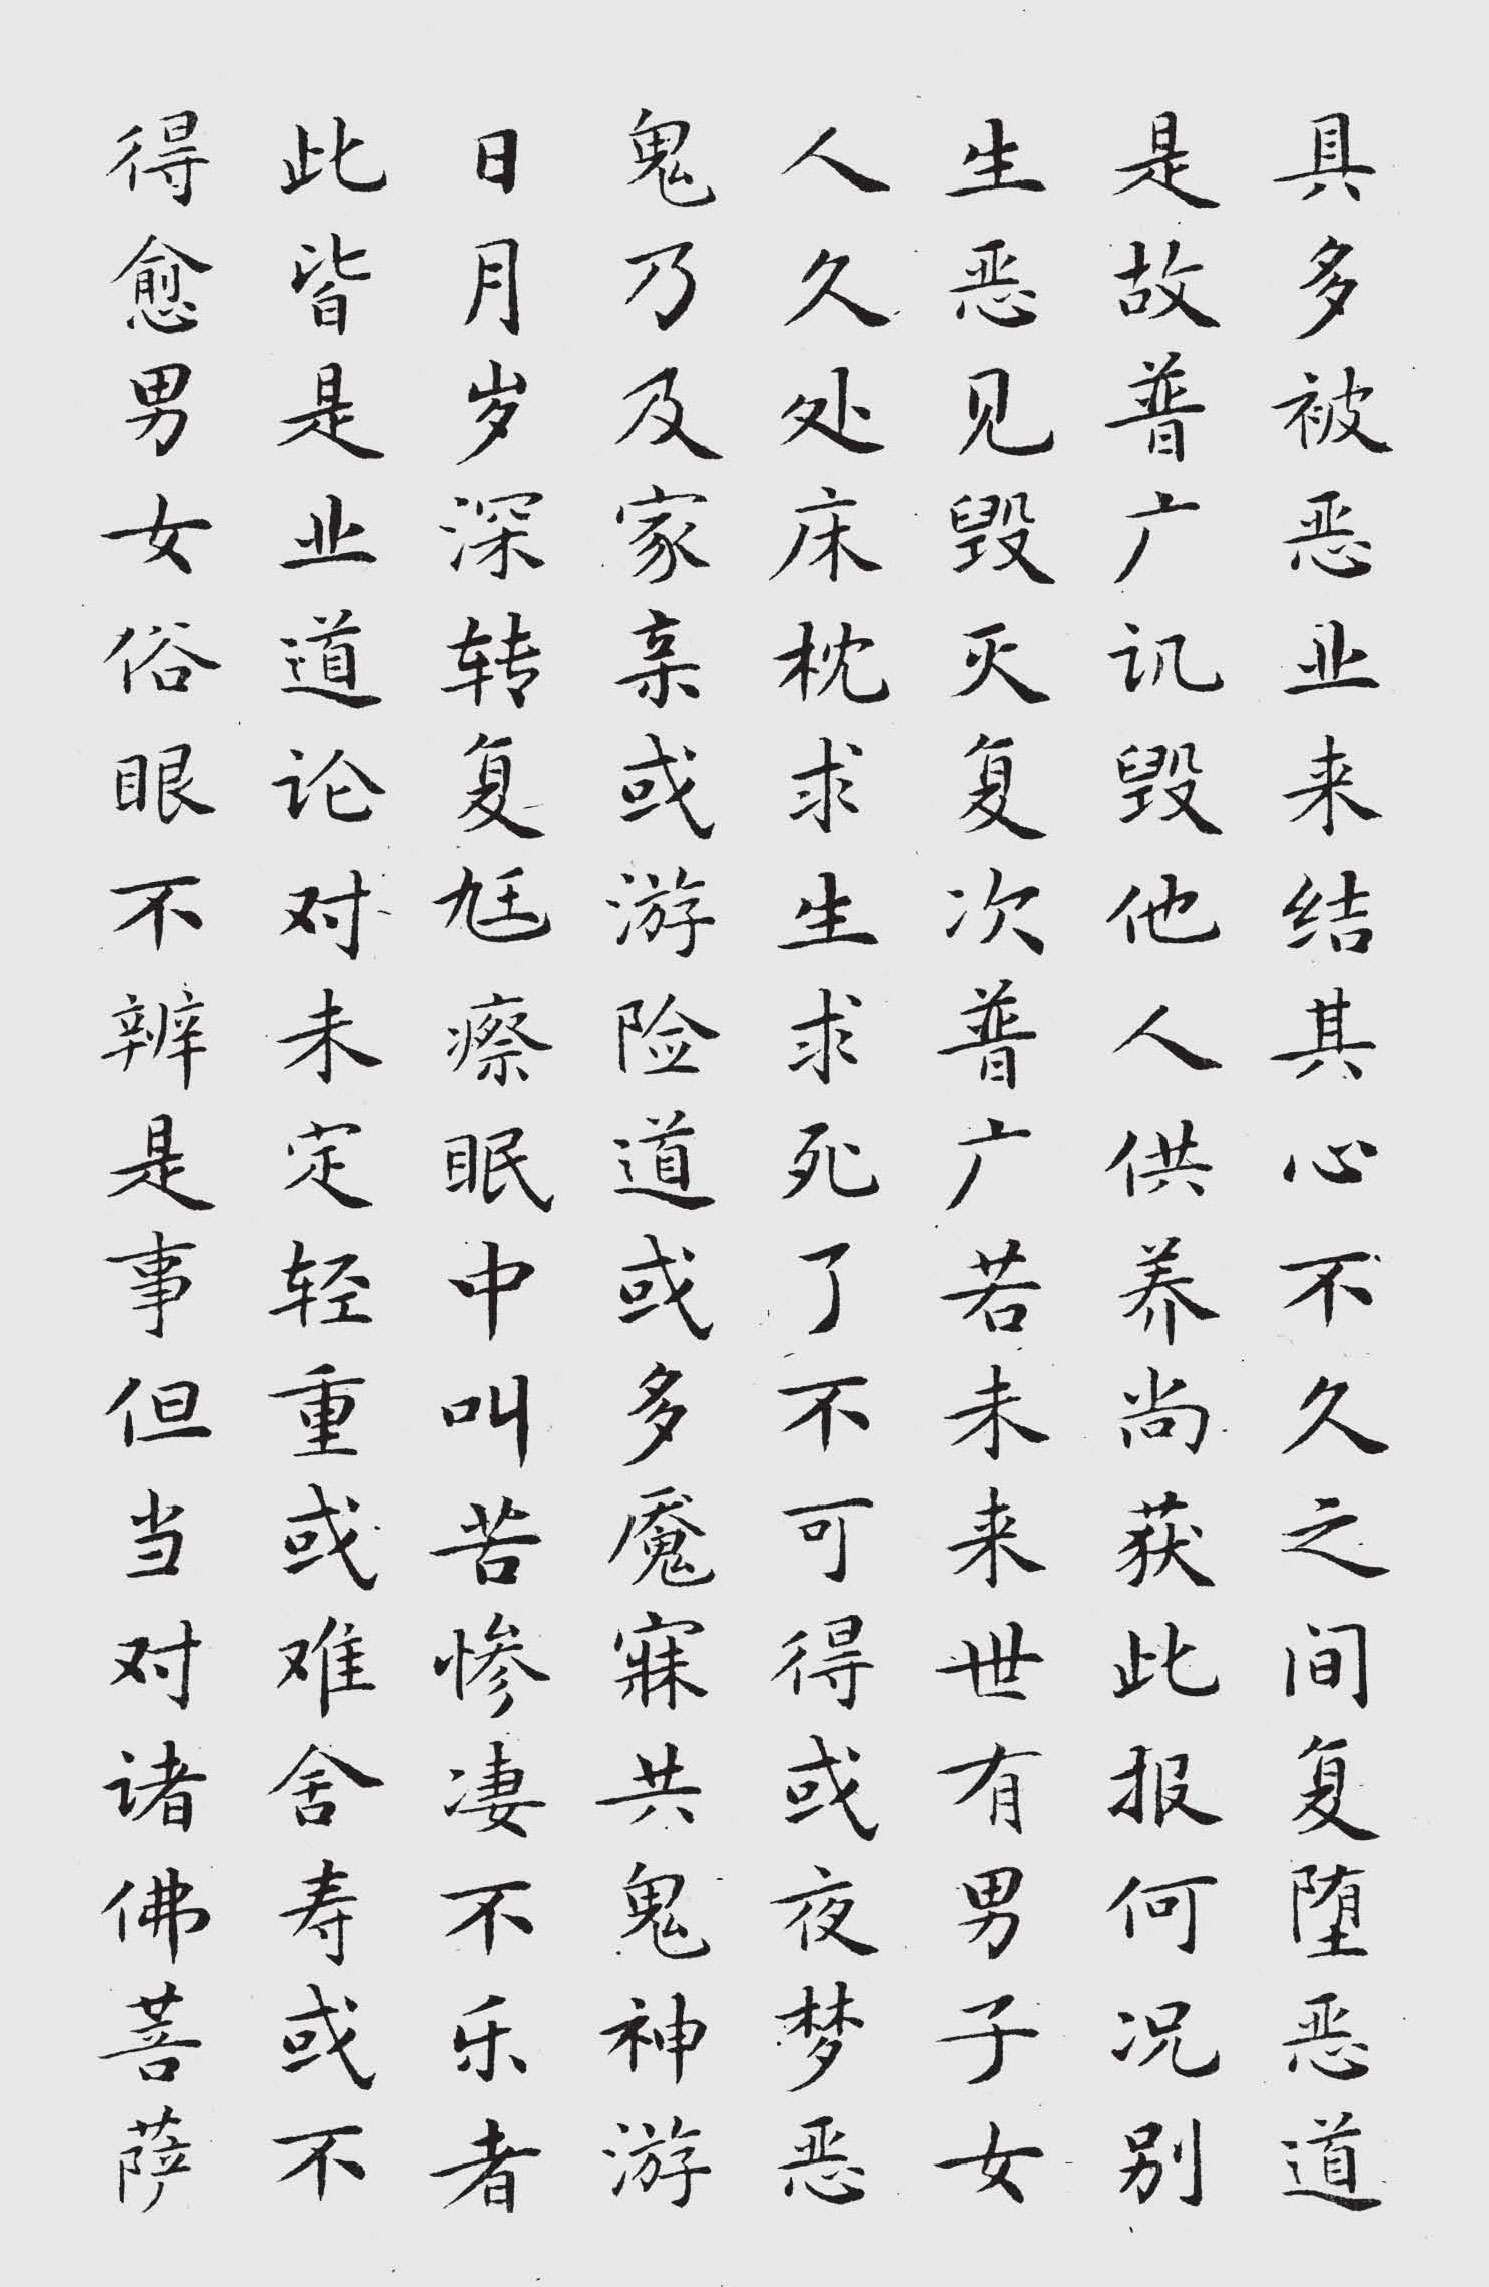 具多被恶业来结其心不久之间复堕恶道
是故普广讥毁他人供养尚获此报何况别
生恶见毁灭复次普广若未来世有男子女
人久处床枕求生求死了不可得或夜梦恶
鬼乃及家亲或游险道或多魇寐共鬼神游
日月岁深转复尪瘵眠中叫苦惨凄不乐者
此皆是业道论对未定轻重或难舍寿或不
得愈男女俗眼不辨是事但当对诸佛菩萨